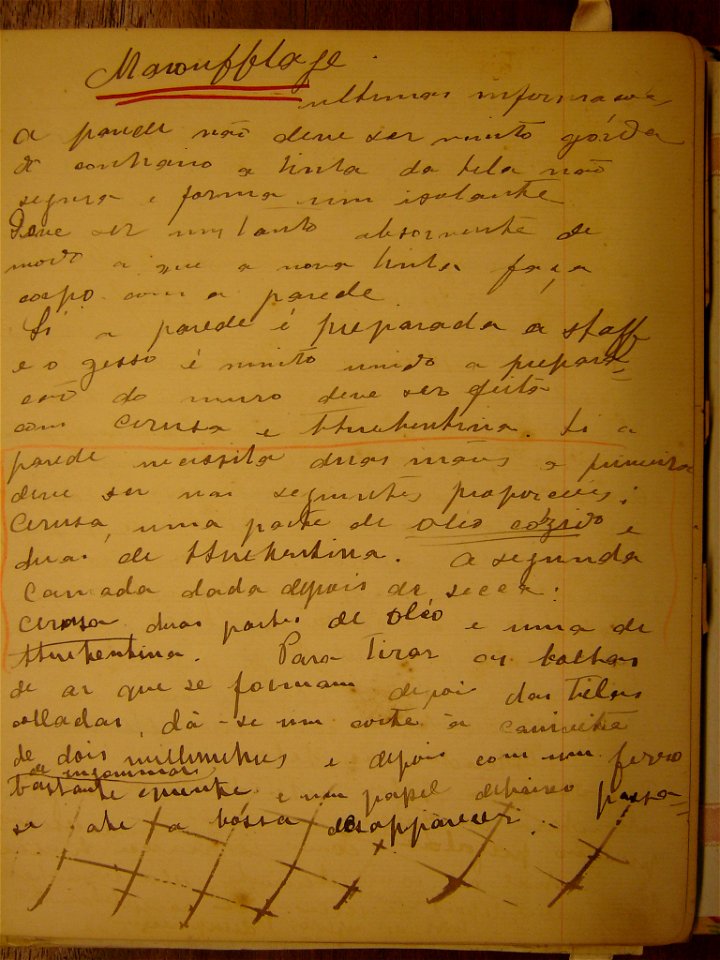 Maroufflage.
ultimas informações
a parede não deve ser muito górda
do contrario a tinta da tela não
segura e forma um isolante
Deve ser um tanto absorvente de
modo a que a nova tinta faça
corpo com a parede
Si a parede é preparada a staff
e o gesso é muito unido a prepara-
ção do muro deve ser feita
com ceruza e thurbentina. Si a
parede necessita duas mãos a primeira
deve ser nas seguintes proporções:
Cerusa, uma parte de oleo cózido e
duas de thurbentina. A segunda
camada dada depois de secca:
cerusa duas partes de oleo e uma de
thurbentina. Para tirar as bolhas
de ar que se formam depois das telas
colladas, dá-se um corte à canivete
de dois millimetros e depois com um ferro
de engommar
bastante quente e um papel debaixo passa-
se até a bóssa desapparecer.